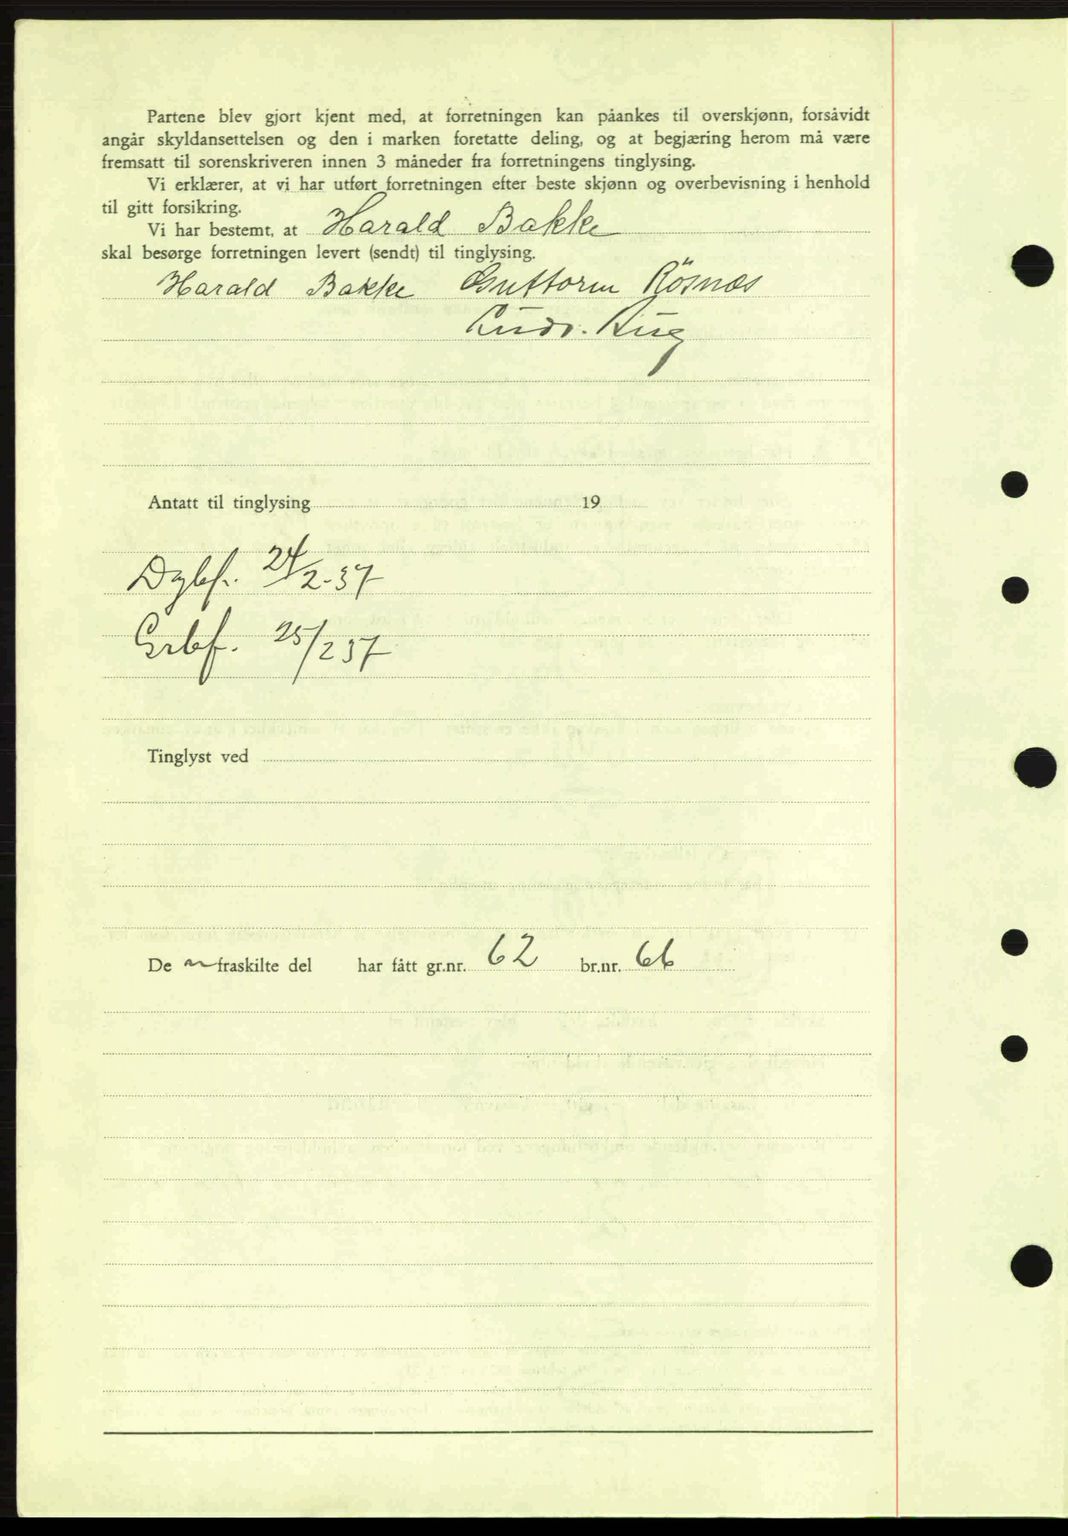 Partene blev gjort kjent med, at forretningen kan påankes til overskjønn, forsåvidt
angår skyldansettelsen og den i marken foretatte deling, og at begjæring herom må være
fremsatt til sorenskriveren innen 3 måneder fra forretningens tinglysing.
Vi erklærer, at vi har utført forretningen efter beste skjønn og overbevisning i henhold
til gitt forsikring.
Vi har bestemt, at Harald Bakke
skal besørge forretningen levert (sendt) til tinglysing.
Harald Bakke Guttorm Røsnæs
Ludv. Aug
Antatt til tinglysing 19
Dgbf. 24/2-37
Grbf. 25/2 37
Tinglyst ved
De fraskilte del har fått gr.nr. 62 br.nr. 66